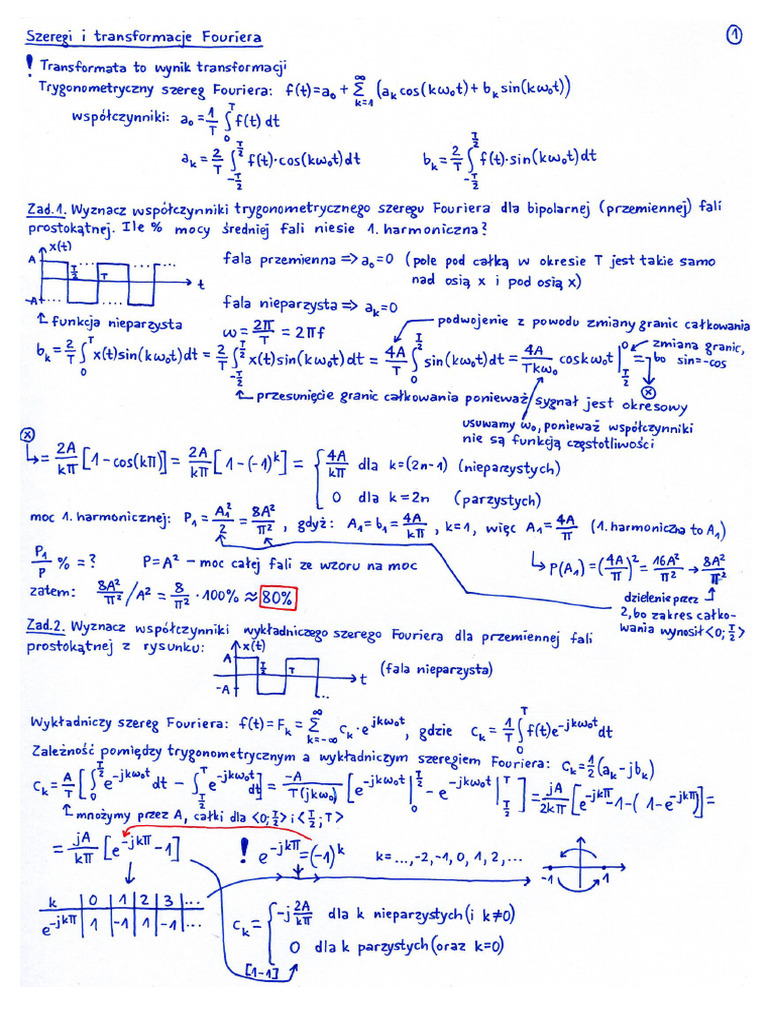 Szeregi i transformacje Fouriera
1
! Transformata to wynik transformacji
Trygonometryczny szereg Fouriera: f(t)=a₀+∑_{k=1}^{∞}(a_k cos(kω₀t)+b_k sin(kω₀t))
współczynniki: a₀=1/T ∫_0^T f(t)dt
a_k=2/T ∫_{-T/2}^{T/2} f(t)·cos(kω₀t)dt b_k=2/T ∫_{-T/2}^{T/2} f(t)·sin(kω₀t)dt
Zad.1. Wyznacz współczynniki trygonometrycznego szeregu Fouriera dla bipolarnej (przemiennej) fali
prostokątnej. Ile % mocy średniej fali niesie 1. harmoniczna?
x(t)
A
T/2
T
t
-A
fala przemienna => a₀=0 (pole pod całką w okresie T jest takie samo
nad osią x i pod osią x)
fala nieparzysta => a_k=0
↑ funkcja nieparzysta
ω=2Π/T=2Πf
podwojenie z powodu zmiany granic całkowania
b_k=2/T ∫_0^T x(t)sin(kω₀t)dt=2/T ∫_{-T/2}^{T/2} x(t)sin(kω₀t)dt=4A/T ∫_0^{T/2} sin(kω₀t)dt=4A/Tkω₀ coskω₀t |_{T/2}^{0} =
zmiana granic,
bo sin=-cos
↑ przesunięcie granic całkowania ponieważ sygnał jest okresowy
usuwamy ω₀, ponieważ współczynniki
nie są funkcją częstotliwości
ⓧ
ⓧ
↳=2A/kΠ[1-cos(kΠ)]=2A/kΠ[1-(-1)^k]={4A/kΠ dla k=(2n-1) (nieparzystych)
0 dla k=2n (parzystych)
moc 1. harmonicznej: P₁=A₁²/2=8A²/Π², gdyż: A₁=b₁=4A/kΠ, k=1, więc A₁=4A/Π (1. harmoniczna to A₁)
P₁/P %=? P=A² – moc całej fali ze wzoru na moc
↳P(A₁)=(4A/Π)²=16A²/Π²→8A²/Π²
zatem: 8A²/Π² /A²=8/Π²·100%≈80%
dzielenie przez
2, bo zakres całko-
wania wynosił <0;T/2>
Zad.2. Wyznacz współczynniki wykładniczego szeregu Fouriera dla przemiennej fali
prostokątnej z rysunku:
x(t)
A
T/2
T
t
-A
(fala nieparzysta)
Wykładniczy szereg Fouriera: f(t)=F_k=∑_{k=-∞}^{∞} c_k·e^{jkω₀t}, gdzie c_k=1/T ∫_0^T f(t)e^{-jkω₀t}dt
Zależność pomiędzy trygonometrycznym a wykładniczym szeregiem Fouriera: c_k=1/2(a_k-jb_k)
c_k=A/T[∫_0^{T/2} e^{-jkω₀t}dt-∫_{T/2}^{T} e^{-jkω₀t}dt]=-A/T(jkω₀)[e^{-jkω₀t}|_0^{T/2}-e^{-jkω₀t}|_{T/2}^{T}]=jA/2kΠ[e^{-jkΠ}-1-(1-e^{-jkΠ})]=
↑ mnożymy przez A, całki dla <0;T/2> i <T/2;T>
=jA/kΠ[e^{-jkΠ}-1] ! e^{-jkΠ}=(-1)^k k=...,-2,-1,0,1,2,...
-1
1
k 0 1 2 3 ...
e^{-jkΠ} 1 -1 1 -1 ...
c_k={-j2A/kΠ dla k nieparzystych (i k≠0)
0 dla k parzystych (oraz k=0)
[1-1]